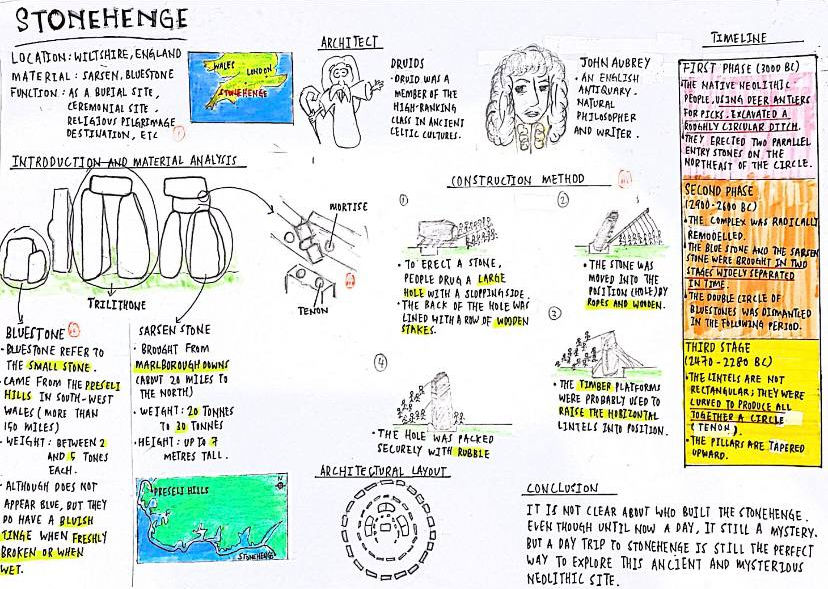 STONEHENGE
LOCATION: WILTSHIRE, ENGLAND
MATERIAL: SARSEN, BLUESTONE
FUNCTION: AS A BURIAL SITE,
CEREMONIAL SITE.
RELIGIOUS PILGRIMAGE
DESTINATION, ETC
WALES
LONDON
STONEHENGE
ARCHITECT
DRUIDS
- DRUID WAS A
MEMBER OF THE
HIGH-RANKING
CLASS IN ANCIENT
CELTIC CULTURES.
JOHN AUBREY
- AN ENGLISH
ANTIQUARY.
NATURAL
PHILOSOPHER
AND WRITER.
INTRODUCTION AND MATERIAL ANALYSIS
TRILITHONE
MORTISE
TENON
BLUESTONE
• BLUESTONE REFER TO
THE SMALL STONE.
• CAME FROM THE PRESELI
HILLS IN SOUTH-WEST
WALES (MORE THAN
150 MILES)
• WEIGHT: BETWEEN 2
AND 5 TONES
EACH.
• ALTHOUGH DOES NOT
APPEAR BLUE, BUT THEY
DO HAVE A BLUISH
TINGE WHEN FRESHLY
BROKEN OR WHEN
WET.
SARSEN STONE
• BROUGHT FROM
MARLBOROUGH DOWNS
(ABOUT 20 MILES TO
THE NORTH)
• WEIGHT: 20 TONNES
TO 30 TONNES
• HEIGHT: UP TO 7
METRES TALL.
PRESELI HILLS
N
STONEHENGE
CONSTRUCTION METHOD
1
• TO ERECT A STONE,
PEOPLE DRUG A LARGE
HOLE WITH A SLOPPING SIDE.
• THE BACK OF THE HOLE WAS
LINED WITH A ROW OF WOODEN
STAKES.
2
• THE STONE WAS
MOVED INTO THE
POSITION (HOLE) BY
ROPES AND WOODEN.
3
• THE TIMBER PLATFORMS
WERE PROBABLY USED TO
RAISE THE HORIZONTAL
LINTELS INTO POSITION.
4
• THE HOLE WAS PACKED
SECURELY WITH RUBBLE
ARCHITECTURAL LAYOUT
TIMELINE
FIRST PHASE (3000 BC)
• THE NATIVE NEOLITHIC
PEOPLE, USING DEER ANTLERS
FOR PICKS, EXCAVATED A
ROUGHLY CIRCULAR DITCH.
• THEY ERECTED TWO PARALLEL
ENTRY STONES ON THE
NORTHEAST OF THE CIRCLE.
SECOND PHASE
(2900-2600 BC)
• THE COMPLEX WAS RADICALLY
REMODELLED.
• THE BLUE STONE AND THE SARSEN
STONE WERE BROUGHT IN TWO
STAGES WIDELY SEPARATED
IN TIME.
• THE DOUBLE CIRCLE OF
BLUESTONES WAS DISMANTLED
IN THE FOLLOWING PERIOD.
THIRD STAGE
(2470-2280 BC)
• THE LINTELS ARE NOT
RECTANGULAR; THEY WERE
CURVED TO PRODUCE ALL
TOGETHER A CIRCLE
(TENON).
• THE PILLARS ARE TAPERED
UPWARD.
CONCLUSION
IT IS NOT CLEAR ABOUT WHO BUILT THE STONEHENGE.
EVEN THOUGH UNTIL NOW A DAY, IT STILL A MYSTERY.
BUT A DAY TRIP TO STONEHENGE IS STILL THE PERFECT
WAY TO EXPLORE THIS ANCIENT AND MYSTERIOUS
NEOLITHIC SITE.